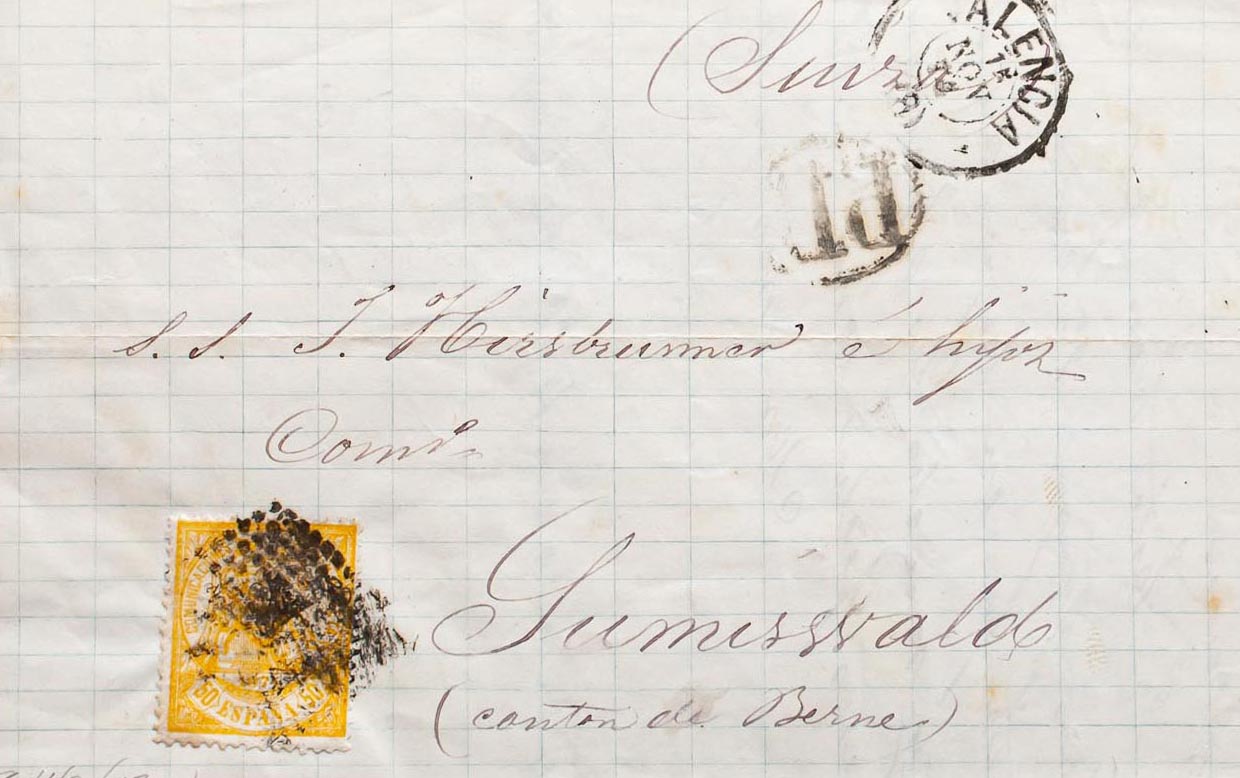 (Suiza
VALENCIA
15
NOV
PD
S. S. J. Hirsbrunner é hijos
Sumiswald
(canton de Berne)
COMUNICA
50 ESPAÑA 50